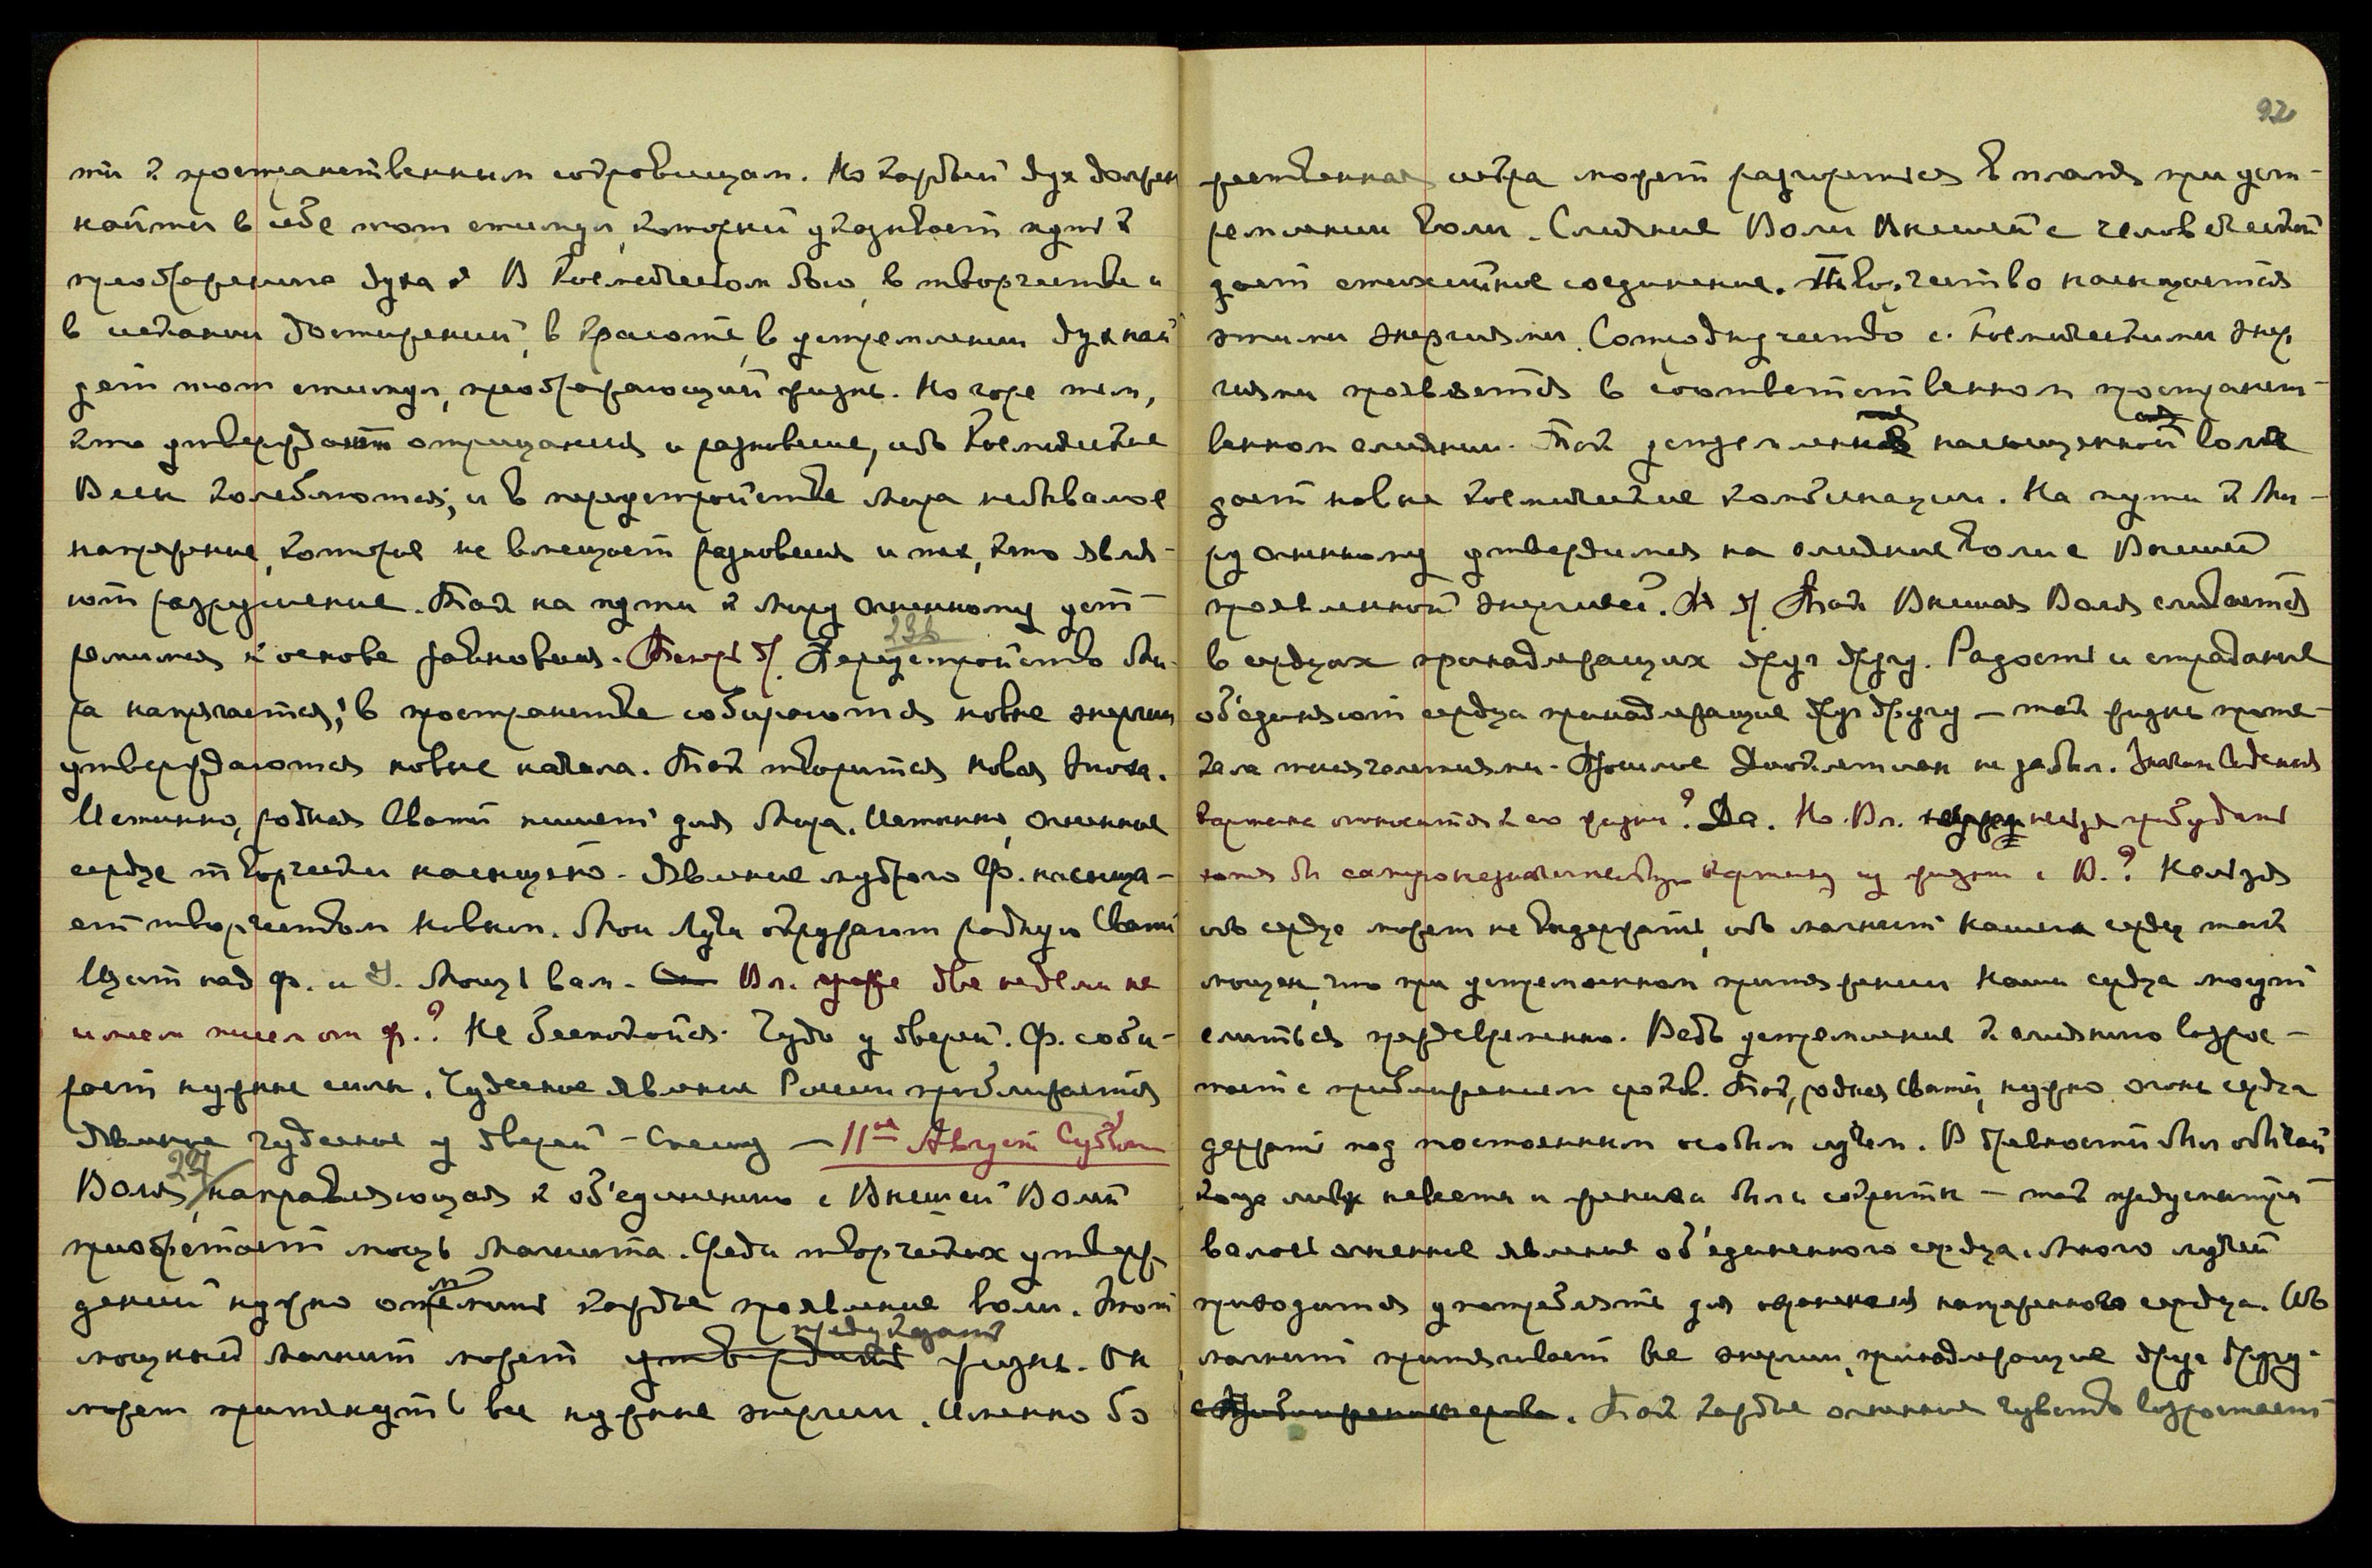 ти к пространственным сокровищам. Но каждый дух должен
найти в себе тот стимул, который указывает путь к
преображению духа. В Космическом Огне, в творчестве и
в искании достижений, в красоте, в устремлении дух най
дет тот стимул, преображающий жизнь. Но горе тем,
кто утверждает отрицания и разновесие, ибо Космические
Весы колеблются, и в переустройстве мира небывалое
напряжение, которое не вмещает разновесия и тех, кто явля-
ют разрушение. Так на пути к Миру Огненному уст-
236
ремимся к основе равновесия. Переустройство Ми-
ра напрягается; в пространстве собираются новые энергии
утверждаются новые начала. Так творится новая Эпоха.
Истинно, родная Свати пишет для Мира. Истинно, огненное
сердце творчески насыщено. Явление мудрого Ф. насыща-
ет творчеством новым. Мои Лучи окружают родную Свати
Щит над Ф. и У. Мощь вам. Вл. уже две недели не
имеем писем от Ф.? Не беспокойся. Чудо у дверей. Ф. соби-
рает нужные силы. Чудесное явление России приближается
Явление чудесное у дверей – Спешу – 11ое Август Суббота
237
Воля, направляющая к об'единению с Высшей Волей
приобретает мощь Магнита. Среди творческих утверж
дений нужно отметить каждое проявление воли. Этот
предуказать
мощный магнит может утвердить жизнь. Он
может притянуть все нужные энергии. Именно бо
92
жественная искра может разгореться в пламя при уст-
ремлении воли. Слияние Воли Высшей с человеческой
дает стихийное соединение. Творчество насыщается
этими энергиями. Сотрудничество с космическими энер
гиями проявляется в соответственном пространст-
венном слиянии. Так устремленная насыщенная воля
дает новые космические комбинации. На пути к Ми-
ру Огненному утвердимся на слияние воли с Высшей
проявленной энергией. Так Высшая Воля сливается
в сердцах принадлежащих друг другу. Радость и страдание
об'единяют сердца принадлежащие друг другу – так жизнь проте-
кала тысячелетиями. Прошлое не забыл.
картина относится к его жизни? Да. Но Вл. нельзя пробудить
хотя бы самую незначительную картину из жизни с В.? Нельзя
ибо сердце может не выдержать, ибо магнит наших сердец так
мощен, что при устремленном притяжении наши сердца могут
слиться преждевременно. Ведь устремление к слиянию возрос-
тает с приближением сроков. Так, родная Свати, нужно огонь сердца
держать под постоянным особым лучом. В древности был обычай
когда лики невесты и жениха были сокрыты – так предусматри
валось огненное явление об'единенного сердца. Много лучей
приходится употреблять для охранения напряженного сердца. Ибо
магнит притягивает все энергии, принадлежащие друг другу.
Так каждое огненное чувство возростает